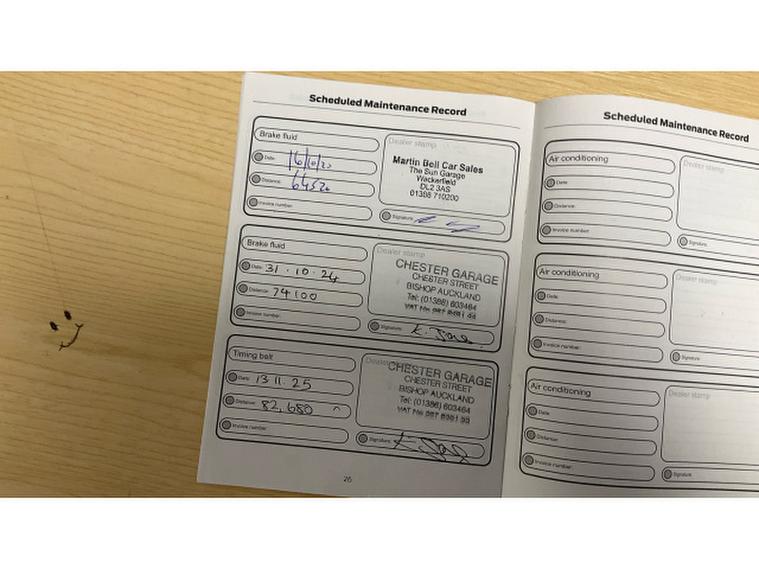 Scheduled Maintenance Record
Brake fluid
Date: 16/10/20
Distance: 64520
Invoice number:
Dealer stamp
Martin Bell Car Sales
The Sun Garage
Wackerfield
DL2 3AS
01388 710200
Signature:
Brake fluid
Date: 31.10.24
Distance: 74100
Invoice number:
Dealer stamp
CHESTER GARAGE
CHESTER STREET
BISHOP AUCKLAND
Tel: (01388) 603464
VAT No
Signature:
Timing belt
Date: 13 11.25
Distance: 82,680
Invoice number:
Dealer stamp
CHESTER GARAGE
CHESTER STREET
BISHOP AUCKLAND
Tel: (01388) 603464
VAT No
Signature:
26
Scheduled Maintenance Record
Air conditioning
Date:
Distance:
Invoice number:
Dealer stamp
Signature:
Air conditioning
Date:
Distance:
Invoice number:
Dealer stamp
Signature:
Air conditioning
Date:
Distance:
Invoice number:
Dealer stamp
Signature: